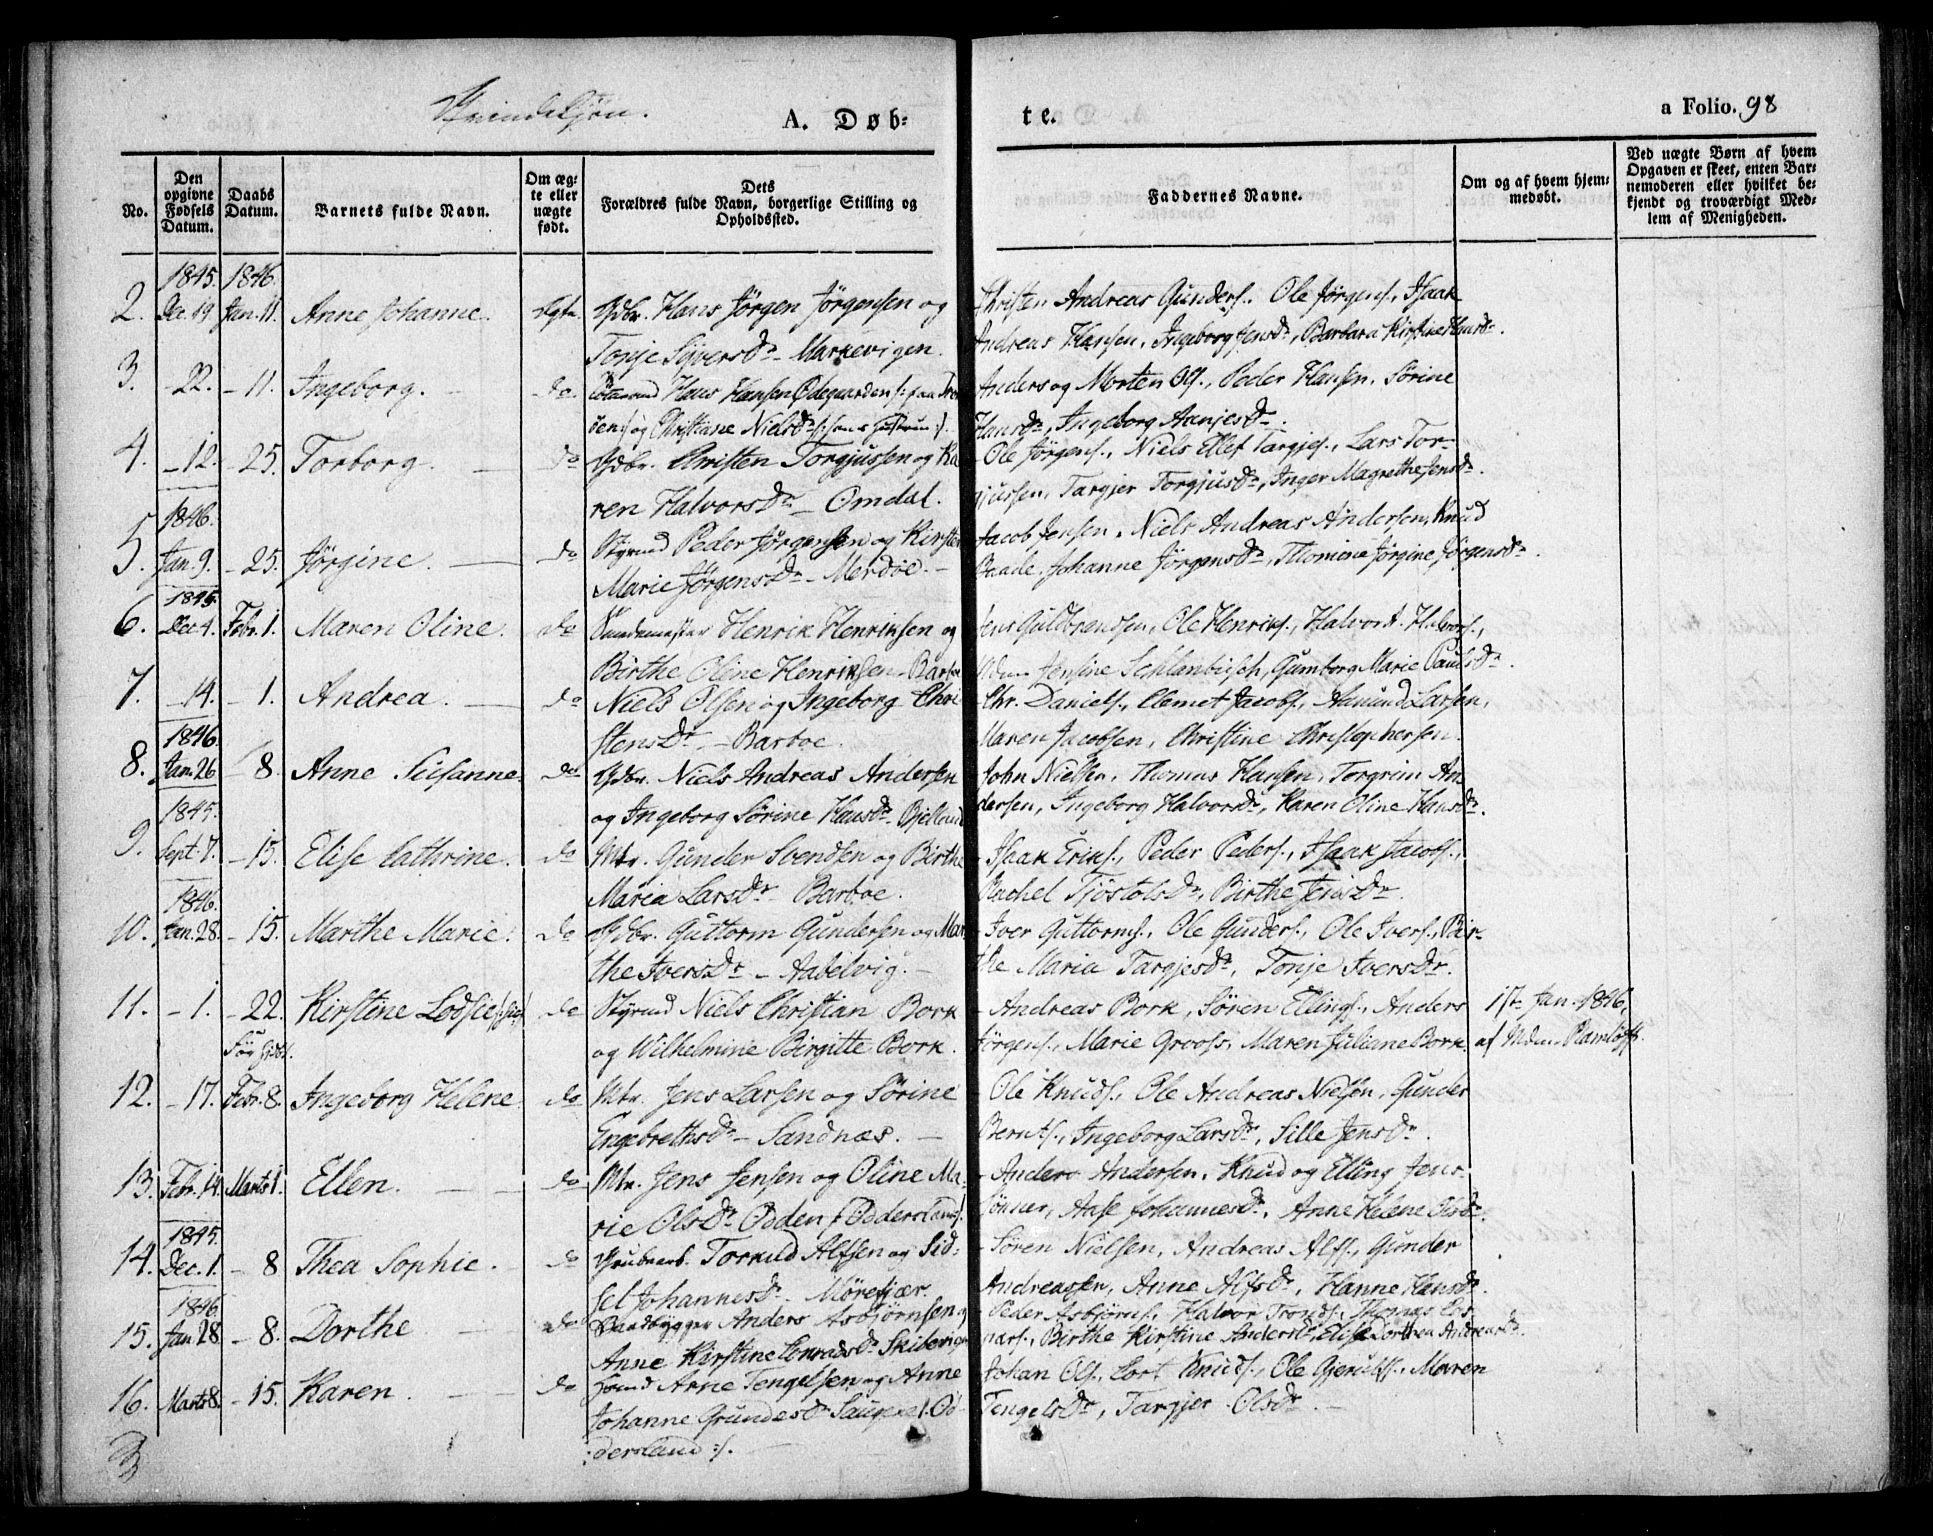 Qvindekjön.
A. Døb-
te.
a Folio. 98
No.
Den opgivne Fødsels Datum.
Daabs Datum.
Barnets fulde Navn.
Om ægte eller uægte født.
Dets Forældres fulde Navn, borgerlige Stilling og Opholdssted.
Faddernes Navne.
Om og af hvem hjemmedøbt.
Ved uægte Børn af hvem Opgaven er skeet, enten Barnemoderen eller hvilket bekjendt og troværdigt Medlem af Menigheden.
1845. 1846.
2. Dec. 19 Jan. 11. Anne Johanne. Ægte. Gdbr. Hans Jörgen Jörgensen og
Tonje Sivers Dr. - Markevigen.
Christen Andreas Gunders., Ole Jörgens., Isaak
Andreas Hansen, Ingeborg Jens Dr., Barbara Kirstine Hans Dr.
3. - 22. - 11. Ingeborg. do. Hans Hansen Ödegaarden
og Christiane Niels Dr.
Anders og Morten Ols., Peder Hansen, Sörine
Hans Dr., Ingeborg Aanjes Dr.
4. - 12. - 25. Torborg. do Gdbr. Christen Torgjussen og Ka-
ren Halvors Dr. - Omdal.
- Ole Jörgens., Niels Ellef Targjes., Lars Tor-
gjussen, Targjer Torgjus Dr., Inger Magrethe Jens Dr.
1846.
5. Jan. 9. - 25. Jörgine. do Styrmd Peder Jörgensen og Kirsten
Marie Jörgens Dr. - Merdöe.
Jacob Jensen, Niels Andreas Andersen, Knud
Baade, Johanne Jörgens Dr., Thomine Jörgine Jörgens Dr.
1845.
6. Dec 4. Febr. 1. Maren Oline. do Henrik Henriksen og
Birthe Oline Henriksen - Barboe
Jens Guldbrandsen, Ole Henriks., Halvor A. Halvors.,
Mdm. Jensine Schlanbusch, Gumborg Marie Pauls Dr.
7. - 14. - 1. Andrea. do Niels Olsen og Ingeborg Chri-
stens Dr. - Barboe.
- Chr. Daniels., Clemet Jacobs., Aanund Larsen,
Maren Jacobsen, Christine Christophersen.
1846.
8. Jan. 26 - 8. Anne Susanne. do Gdbr. Niels Andreas Andersen
og Ingeborg Sörine Hans Dr. Bjelland
John Nielsen, Thomas Hansen, Torgrim An-
dersen, Ingeborg Halvors Dr., Karen Oline Hans Dr.
1845.
9. Sept. 7. - 15. Elise Cathrine. do Mtr. Gunder Svendsen og Birthe
Maria Lars Dr. Barboe.
- Isaak Eriks., Peder Peders., Isaak Jacobs.,
Rachel Tjöstols Dr., Birthe Jens Dr.
1846.
10. Jan. 28. - 15. Marthe Marie. do Gdbr. Guttorm Gundersen og Mar-
the Ivers Dr. - Aabelvig. -
- Iver Guttorms., Ole Gunders., Ole Ivers., Bir-
the Maria Targjes Dr., Tonje Ivers Dr.
11. - 1. - 22. Kirstine Lodsie (sic) do Styrmd Niels Christian Bork
og Wilhelmine Birgitte Bork.
- Andreas Bork, Sören Ellings., Anders
Jörgens., Marie Grooss, Maren Juliane Bork.
1ste Jan. 1846,
af Mdm. Ramlöff.
12. - 17. Febr. 8. Ingeborg Helene do Mtr. Jens Larsen og Sörine
Engebreths Dr. - Sandnæs. -
- Ole Knuds., Ole Andreas Nielsen, Gunder
Bernts., Ingeborg Lars Dr., Sille Jens Dr.
13. Febr. 14. Marts 1. Ellen. do Mtr. Jens Jensen og Oline Ma-
rie Ols Dr. Odden (: Odderslands :).
- Anders Andersen, Knud og Elling Jens-
Sönner, Aase Johannes Dr., Anne Helene
1845.
14. Dec. 1. - 8 Thea Sophie. do Grubearb. Torkild Alfsen og Sid-
sel Johannes Dr. Mörefjær.
- Sören Nielsen, Andreas Alfs., Gunder
Andreasen, Anne Alfs Dr., Hanne Hans Dr.
1846.
15. Jan 28 - 8. Dorthe do Baadbygger Anders Asbjörnsen og
Anne Kirstine Conrads Dr. Skibevigen
- Peder Asbjörns., Halvor Tronds., Thomas Con-
rads., Birthe Kirstine Anders Dr., Elise Dorthea Andreas Dr.
16. Marts 8. - 15. Karen. do Arne Tengelsen og Anne
Johanne Grundes Dr. Saugene (: Od-
dersland :).
Johan Ols., Cort Knuds., Ole Gjeruls., Maren
Tengels Dr., Targjer Ols Dr.